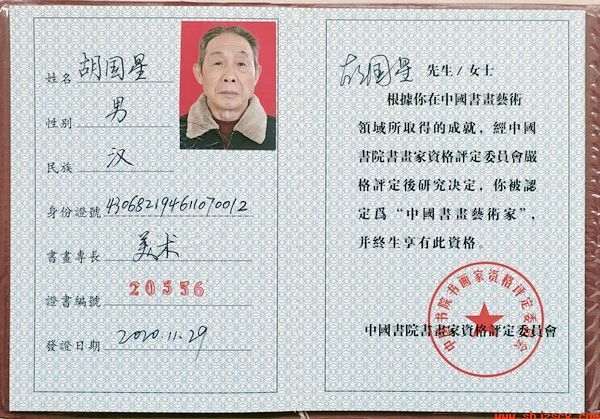 姓名 胡国星
性别 男
民族 汉
身份證號 430682194611070012
書畫專長 美术
證書編號 20556
發證日期 2020.11.29
胡國星 先生/女士
根據你在中國書畫藝術
領域所取得的成就，經中國
書院書畫家資格評定委員會嚴
格評定後研究决定，你被認
定爲“中國書畫藝術家”，
并終生享有此資格。
中国书院书画家资格评定委员会
中國書院書畫家資格評定委員會